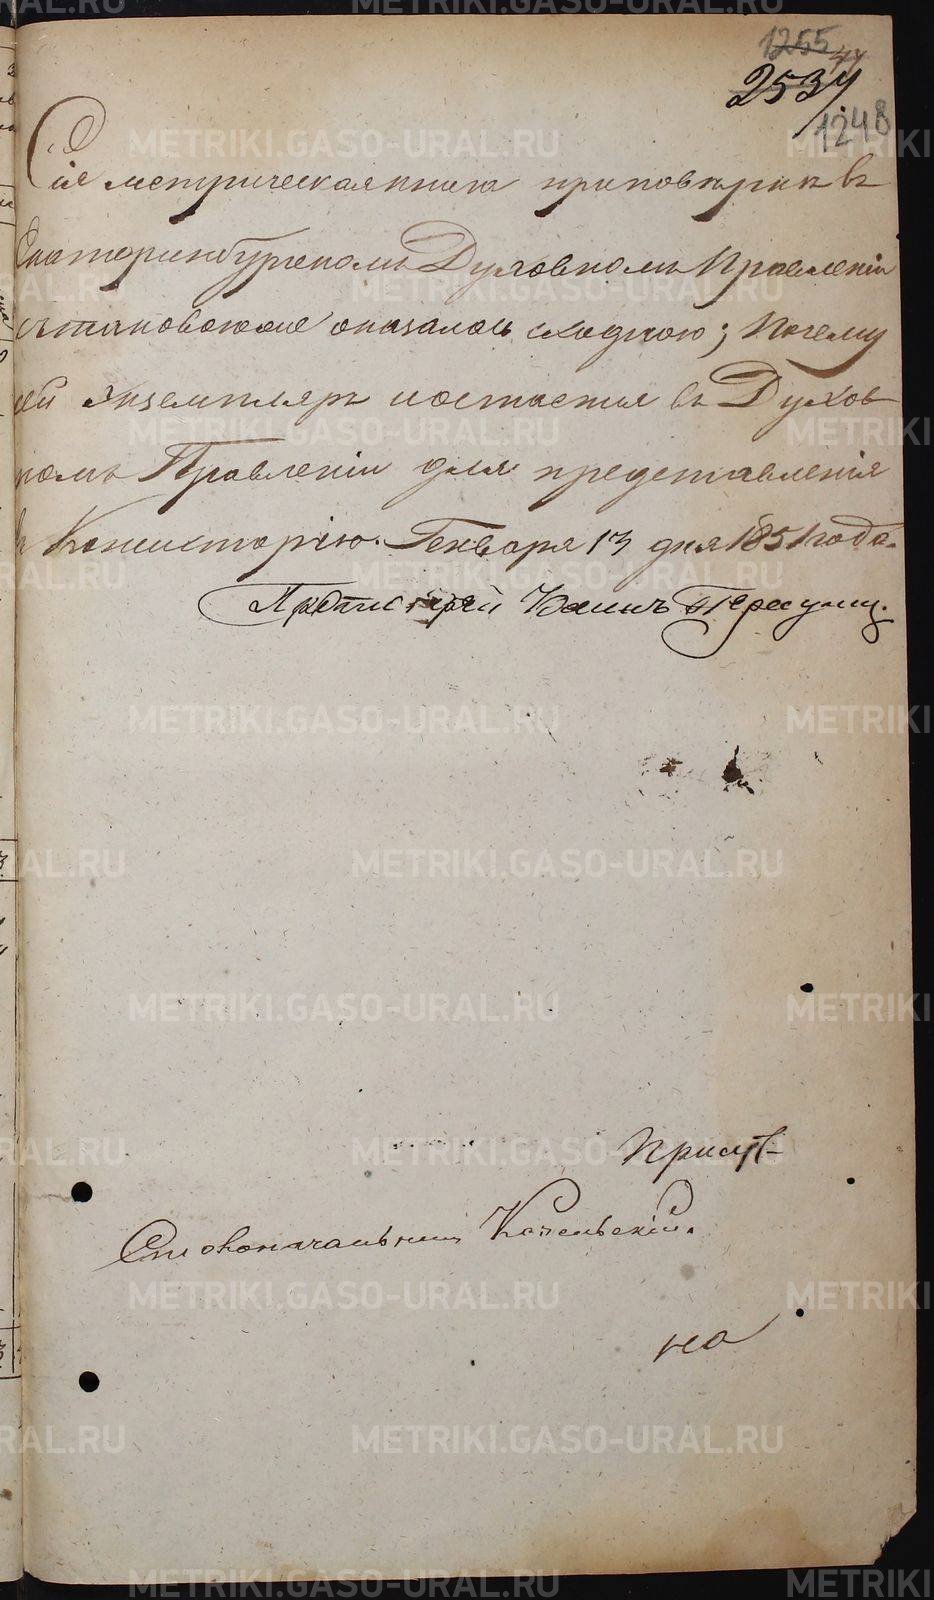 1255
2534
1248
Сія метрическая книга при повѣркѣ въ
Екатеринбургскомъ Духовномъ Правленіи
съ таковоюже оказалась сходною; Почему
сей экземпляръ и остается въ Духов
номъ Правленіи для представленія
въ Консисторію. Генваря 13 дня 1851 года.
Іоаннъ
Столоначальникъ
METRIKI.GASO-URAL.RU